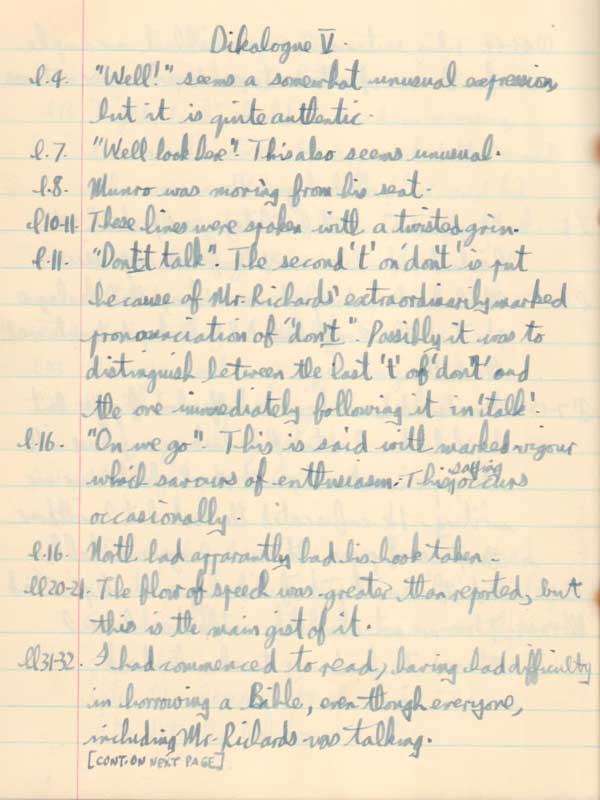 Dikalogue V.
l.4. "Well!" seems a somewhat unusual expression,
but it is quite authentic.
l.7. "Well look here". This also seems unusual.
l.8. Munro was moving from his seat.
ll10-11. These lines were spoken with a twisted grin.
l.11. "Dontt talk". The second 't' on 'don't' is put
because of Mr. Richards' extraordinarily marked
pronounciation of "don't". Possibly it was to
distinguish between the last 't' of 'don't' and
the one immediately following it in 'talk'
l.16. "On we go". This is said with marked vigour
which savours of enthusiasm. This saying occurs
occasionally.
l.16. North had apparantly had his book taken.
ll20-21. The flow of speech was greater than reported, but
this is the main gist of it.
ll31-32. I had commenced to read, having had difficulty
in borrowing a Bible, even though everyone,
including Mr. Richards was talking.
[CONT. ON NEXT PAGE]